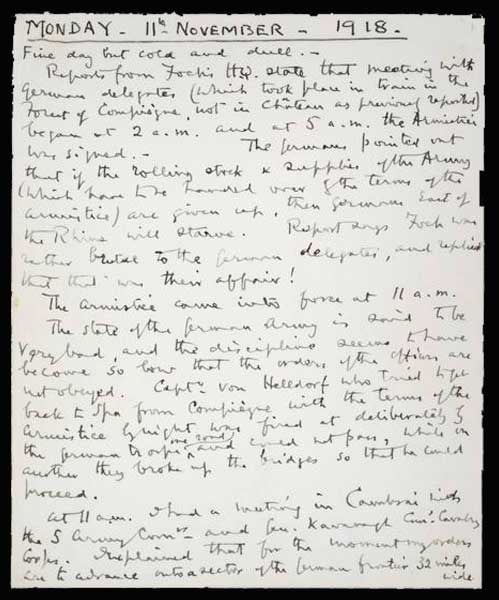 MONDAY - 11th NOVEMBER - 1918.
Fine day but cold and dull. -
Reports from Foch's H.Q. state that meeting with
German delegates (which took place in train in the
Forest of Compiègne, not in Château as previously reported)
began at 2 a.m. and at 5 a.m. the Armistice
was signed. - The Germans pointed out
that if the rolling stock & supplies of the Army
(which have to be handed over by the terms of the
armistice) are given up, then Germans East of
the Rhine will starve. Report says Foch was
rather brutal to the German delegates, and replied
that that was their affair!
The armistice came into force at 11 a.m.
The state of the German Army is said to be
very bad, and the discipline seems to have
become so low that the orders of the officers are
not obeyed. Captn. von Helldorf who tried to get
back to Spa from Compiègne with the terms of the
armistice by night was fired at deliberately by
the German troops and could not pass, while on
one road
another they broke up the bridges so that he could
proceed.
At 11 a.m. I had a meeting in Cambrai with
the 5 Army Comrs. and Gen. Kavanagh Comg. Cavalry
Corps. I explained that for the moment my orders
are to advance onto a sector of the German frontier 32 miles
wide